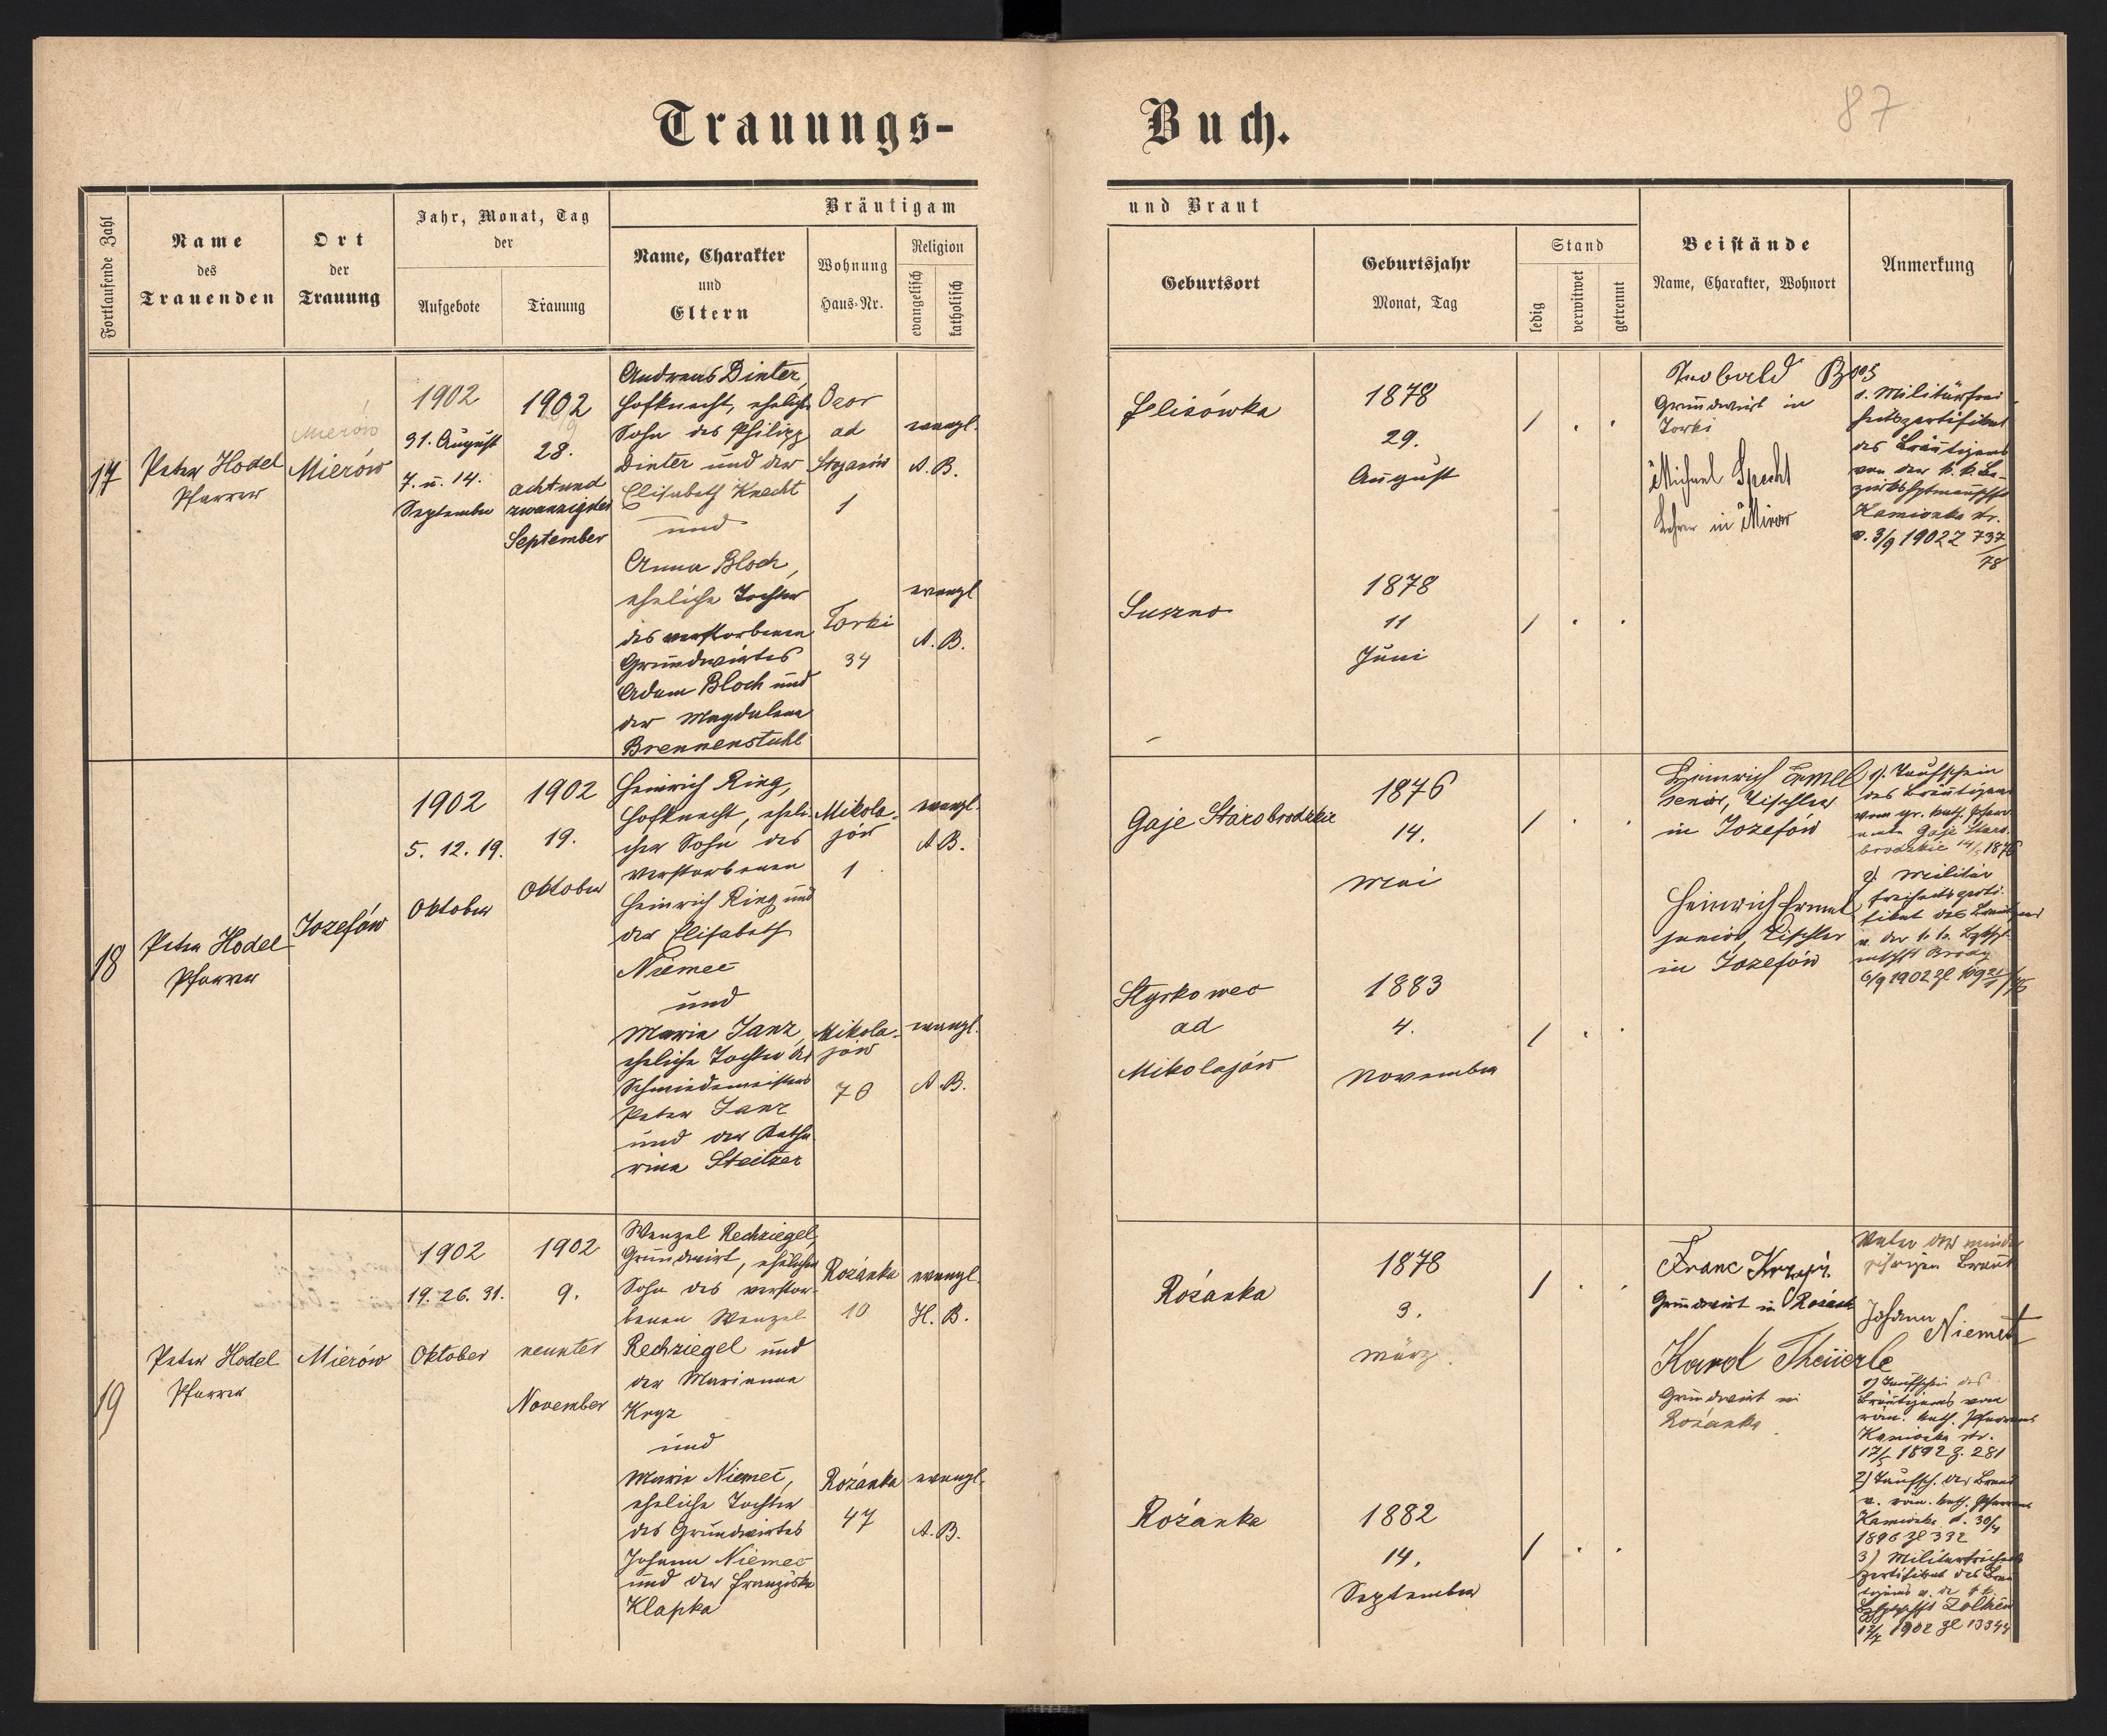 Trauungs-
Buch.
87
Fortlaufende Zahl
Name
des
Trauenden
Ort
der
Trauung
Jahr, Monat, Tag
der
Aufgebote
Trauung
Bräutigam
Name, Charakter
und
Eltern
Wohnung
Haus-Nr.
Religion
evangelisch
katholisch
und Braut
Geburtsort
Geburtsjahr
Monat, Tag
Stand
ledig
verwitwet
getrennt
Beistände
Name, Charakter, Wohnort
Anmerkung
17
Peter Hodel
Pfarrer
Mierów
Mierów
1902
31. August
7. u. 14.
September
1902
28.
achtund
zwanzigster
September
Andreas Dinter,
Hofknecht, ehelicher
Sohn des Philipp
Dinter und der
Elisabeth Knecht
und
Anna Bloch,
eheliche Tochter
des verstorbenen
Grundwirtes
Adam Bloch und
der Magdalena
Brennenstuhl
ad
Stojanów
1
Torki
34
evangl.
A. B.
evangl
A. B.
Felizówka
Suszno
1878
29.
August
1878
11
Juni
Grundwirt in
Torki
Michael Specht
Lehrer in Mirow
1. Militärfrei
heitszertifikat
des Bräutigams
von der k. k. Be-
Kamionka str.
v. 3/9 1902 Z 737/78
18
Peter Hodel
Pfarrer
Jozefów
1902
5. 12. 19.
Oktober
1902
19.
Oktober
Heinrich Ring,
Hofknecht, eheli
cher Sohn des
verstorbenen
Heinrich Ring und
der Elisabeth
Niemec
und
Marie Janz,
eheliche Tochter des
Schmiedemeisters
Peter Janz
und der Katha
rina Steitzer
Mikola-
jów
1
Mikola-
jów
70
evangl.
A. B.
evangl.
A. B.
Gaje Starobrodzkie
Styrkowec
ad
Mikolajów
1876
14.
Mai
1883
4.
November
Heinrich Ermel
senior, Tischler
in Jozefów
Heinrich Ermel
junior, Tischler
in Jozefów
1). Taufschein
des Bräutigams
vom gr. kath. Pfarr
amte Gaje Staro-
brodzkie 14/5 1876
2) Militär
freiheitszerti
fikat des Bräutigams
6/9 1902
19
Peter Hodel
Pfarrer
Mierów
1902
19. 26. 31.
Oktober
1902
9.
neunter
November
Wenzel Rechziegel,
Grundwirt, ehelicher
Sohn des verstor-
benen Wenzel
Rechziegel und
der Marianna
Kryz
und
Marie Niemec,
eheliche Tochter
des Grundwirtes
Johann Niemec
und der Franziska
Klapka
Rozanka
10
Rozanka
47
evangl.
H. B.
evangl.
A. B.
Rózanka
Rózanka
1878
3.
März.
1882
14.
September
Franc
Grundwirt in Rozank
Karol Theüerle
Grundwirt in
Rozanka
Vater der minder
jährigen Braut
Johann
Niemetz
1) Taufschein des
Bräutigams vom
röm. kath. Pfarramt
Kamionka str.
17/5 1892 Z. 281
2) Taufsch. der Braut
v. röm. kath. Pfarramt
Kamionka d. 30/4
1896 Zl 332
3) Militärfreiheits
zertifikat des Bräu
tigams v. der k. k.
Zolkiew
1902 Zl 13344